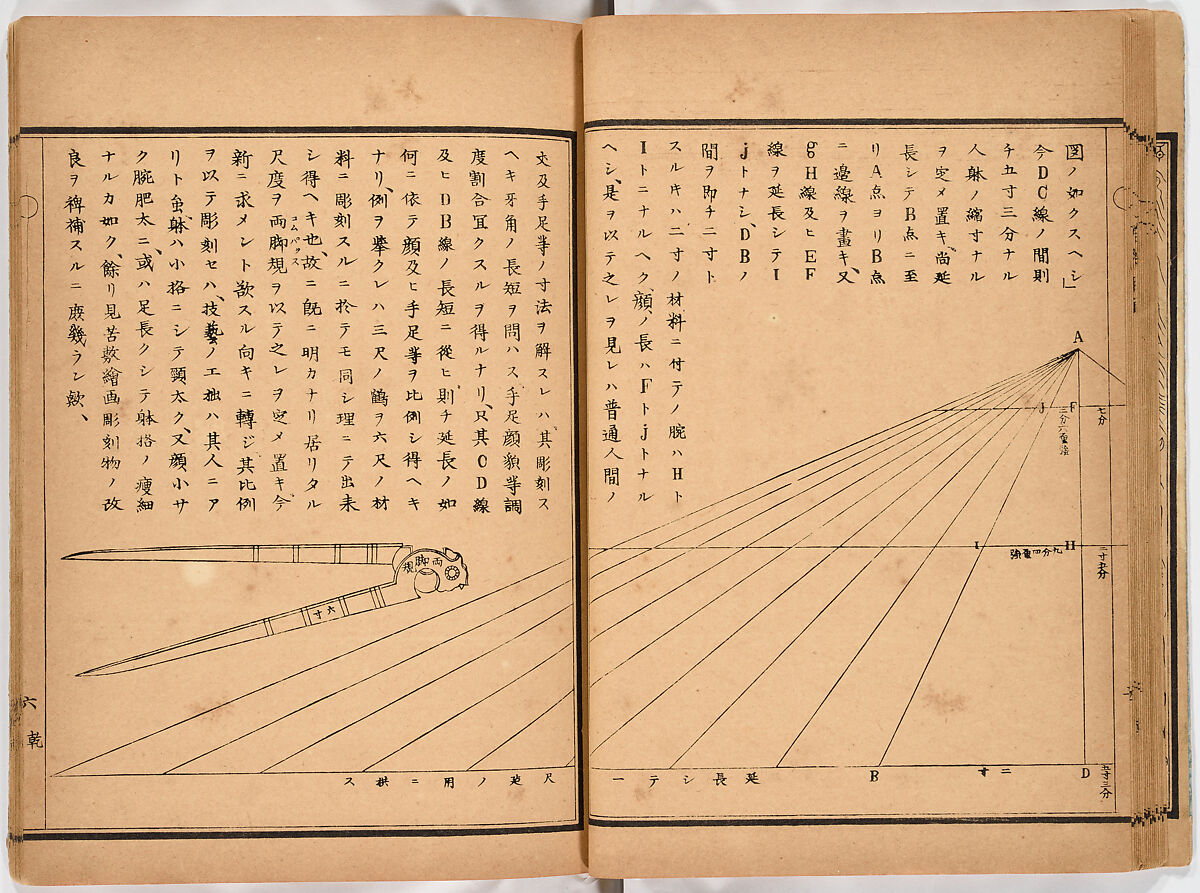 図ノ如クスヘシ」
今DC線ノ間則
チ五寸三分ナル
人躰ノ縮寸ナル
ヲ定メ置キ、尚延
長シテB点ニ至
リA点ヨリB点
ニ邉線ヲ畫キ、又
gH線及ヒEF
線ヲ延長シテI
jトナシ、DBノ
間ヲ即チ二寸ト
スルキハ二寸ノ材料ニ付テノ腕ハHト
Iトニナルヘク、顔ノ長ハFトjトナル
ヘシ、是ヲ以テ之レヲ見レハ普通人間ノ
A
j
F
七分
三分六
I
H
九分四重強
二寸五分
B
二寸
D
五寸三分
延長シテ一
尺迠ノ用ニ拱ス
文及手足等ノ寸法ヲ解スレハ、其彫刻ス
ヘキ牙角ノ長短ヲ問ハス、手足顔貌等調
度割合冝クスルヲ得ルナリ、只其CD線
及ヒDB線ノ長短ニ從ヒ、則チ延長ノ如
何ニ依テ顔及ヒ手足等ヲ比例シ得ヘキ
ナリ、例ヲ擧クレハ三尺ノ鶴ヲ六尺ノ材
料ニ彫刻スルニ於テモ同シ理ニテ出来
シ得ヘキ也、故ニ既ニ明カナリ居リタル
尺度ヲ両脚規ヲ以テ之レヲ定メ置キ、今
コムパツス
新ニ求メント欲スル向キニ轉ジ其比例
ヲ以テ彫刻セハ、技藝ノ工拙ハ其人ニア
リト虽、躰ハ小挌ニシテ頸太ク、又顔小サ
ク腕肥太ニ、或ハ足長クシテ躰挌ノ痩細
ナルカ如ク、餘リ見苦敷繪画彫刻物ノ改
良ヲ裨補スルニ庶幾ラン歟、
両脚規
六寸
六
乾